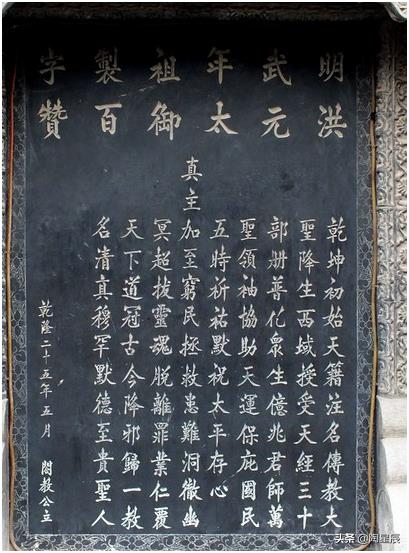 明洪
武元
年太
祖御
製百
字贊
乾坤初始天籍注名傳教大
聖降生西域授受天經三十
部册普化衆生億兆君師萬
聖領袖協助天運保庇國民
五時祈祐默祝太平存心
真主加至窮民拯救患難洞徹幽
冥超拔靈魂脫離罪業仁覆
天下道冠古今降邪歸一教
名清真穆罕默德至貴聖人
乾隆二十五年五月 閤教公立
头条 @陶星辰